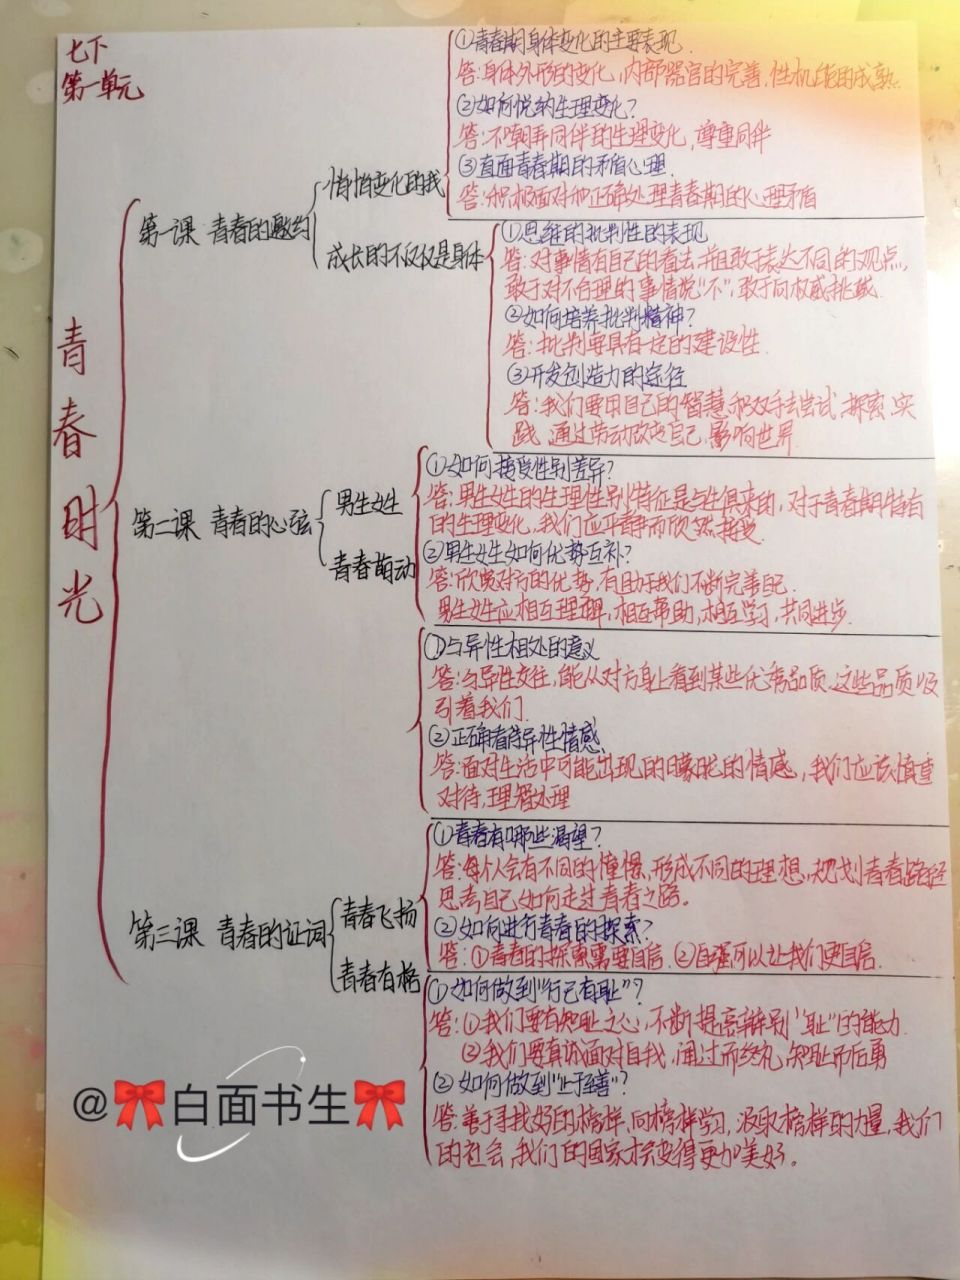 七下
第一单元
青春时光
第一课 青春的邀约
悄悄变化的我
①青春期身体变化的主要表现
答:身体外形的变化,内部器官的完善,性机能的成熟
②如何悦纳生理变化?
答:不嘲弄同伴的生理变化,尊重同伴
③直面青春期的矛盾心理.
答:积极面对和正确处理青春期的心理矛盾
成长的不仅仅是身体
①思维的批判性的表现
答:对事情有自己的看法,并且敢于表达不同的观点,
敢于对不合理的事情说"不",敢于向权威挑战.
②如何培养批判精神?
答:批判要具有一定的建设性.
③开发创造力的途径
答:我们要用自己的智慧和双手去尝试、探索、实
践,通过劳动改变自己,影响世界.
第二课 青春的心弦
男生女生
①如何接受性别差异?
答:男生女生的生理性别特征是与生俱来的,对于青春期特有
的生理变化,我们应平静而欣然接受.
②男生女生如何优势互补?
答:欣赏对方的优势,有助于我们不断完善自己.
男生女生应相互理解,相互帮助,相互学习,共同进步.
青春萌动
①与异性相处的意义
答:与异性交往,能从对方身上看到某些优秀品质,这些品质吸
引着我们.
②正确看待异性情感.
答:面对生活中可能出现的朦胧的情感,我们应该慎重
对待,理智处理
第三课 青春的证词
青春飞扬
①青春有哪些渴望?
答:每个人会有不同的憧憬,形成不同的理想,规划青春路径
思考自己如何走过青春之路。
②如何进行青春的探索?
答:①青春的探索需要自信.②自强可以让我们更自信.
青春有格
①如何做到"行己有耻"?
答:①我们要有知耻之心,不断提高辨别"耻"的能力.
②我们要真诚面对自我,通过而终礼,知耻而后勇
②如何做到"止于至善"?
答:善于寻找好的榜样,向榜样学习,汲取榜样的力量,我们
的社会,我们的国家才会变得更加美好。
@🎀白面书生🎀